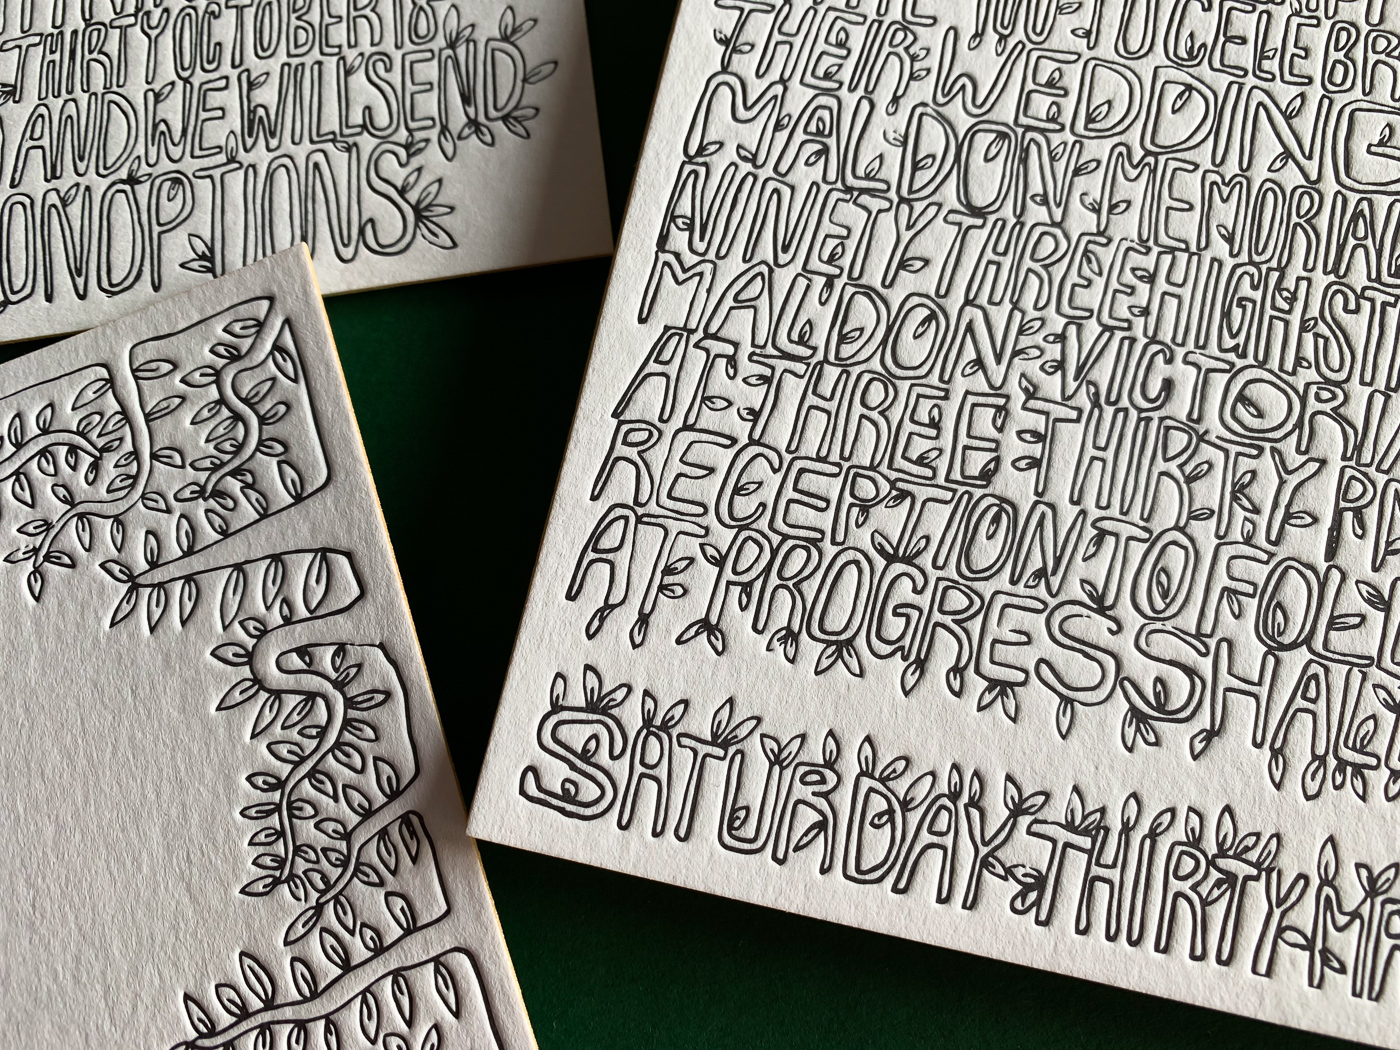 THIRTY OCTOBER IS
AND WE WILL SEND
ON OPTIONS
YOU TO CELEBR
THEIR WEDDING
MALDON MEMORIAL
NINETY THREE HIGH ST
MALDON VICTORIA
AT THREE THIRTY PM
RECEPTION TO FOLL
AT PROGRESS HALL
SATURDAY THIRTY MA